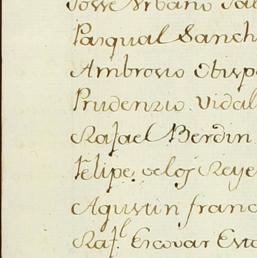 Josse Urbano Sal
Pasqual Sanch
Ambrosio Obispo
Prudenzio. Vidal
Rafael Berdin
Felipe. de los Reye
Agustin franc
Raf.l Escovar Esta